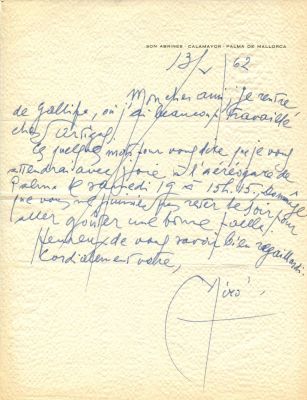 SON ABRINES - CALAMAYOR - PALMA DE MALLORCA
13/V/62
Mon cher ami, je rentre
de Gallifa, où j'ai beaucoup travaillé
chez Artigas.
Ces quelques mots pour vous dire que je vous
attendrai avec joie à l'aéroport de
Palma le samedi 19 à 15h.45.
que vous ne pourriez pas rester le soir pour
aller goûter une bonne paella.
Heureux de vous savoir bien regaillardi.
Cordialement vôtre,
Miró.